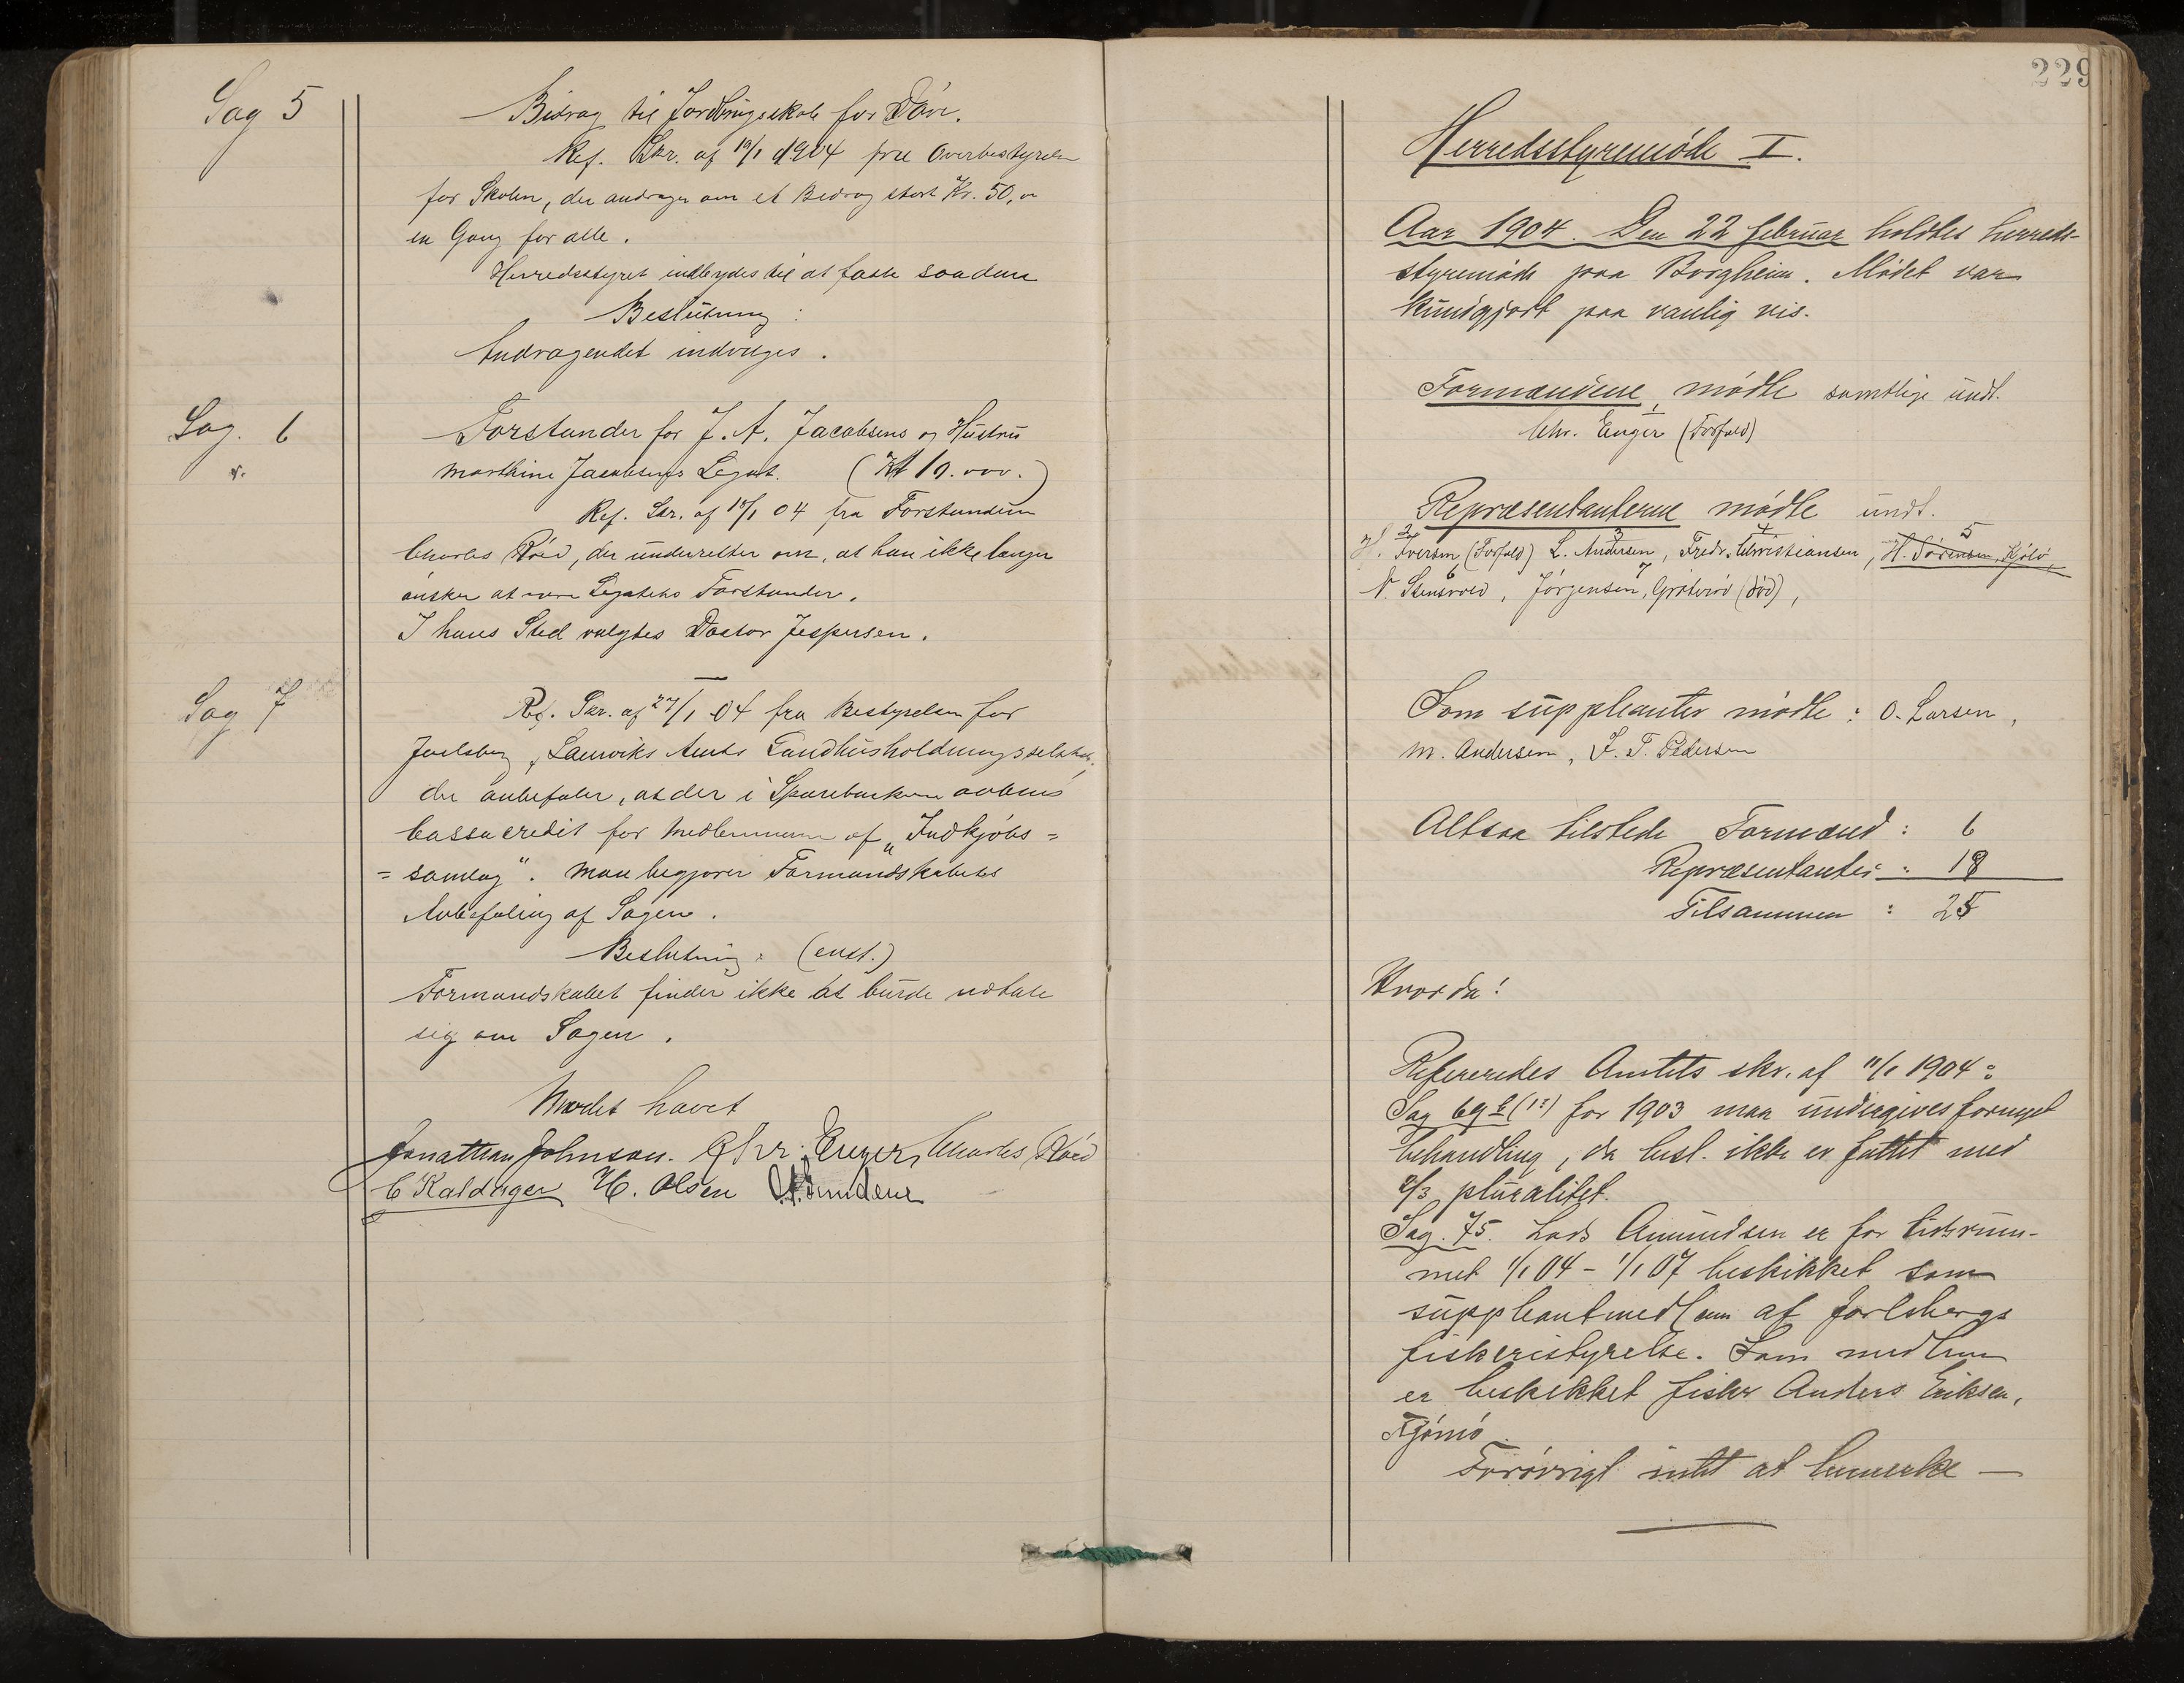 Sag 5
Bidrag til Jordbrugsskole for Døve.
Ref. Skr. af 19/1 1904 fra Overbestyrelsen
for Skolen, der andrager om et Bidrag stort Kr. 50,
en Gang for alle.
Herredsstyret indbydes til at fatte saadan
Beslutning:
Andragendet indvilges.
Sag. 6
Forstander for J. A. Jacobsens og Hustru
Marthine Jacobsens Legat.
Ref. Skr. af 04 fra Forstanderen
Charles Róed, der underretter om, at han ikke længer
ónsker at være Legatets Forstander.
I hans Sted valgtes Doctor Jespersen.
Sag 7
Ref. Skr. af 27/1 04 fra Bestyrelsen for
Jarlsberg & Laurviks Amts Landhusholdningsselskab,
der anbefaler, at der i Sparebankerne aabnes
Cassacredit for Medlemmerne af „Indkjóbs=
=samlag". Man begjærer Formandskabets
Anbefaling af Sagen.
Beslutning: (enst.)
Formandskabet finder ikke at burde udtale
sig om Sagen.
Mødet hævet
Jonathan Johnson. Chr. Enger, Charles Róed
C Kaldager H. Olsen
229
Herredsstyremóde I.
Aar 1904. Den 22 februar holdtes herreds-
styremóde paa Borgheim. Módet var
kundgjort paa vanlig vis.
Formændene módte samtlige undt.
Chr. Enger (Forfald)
1
Repræsentanterne módte undt.
2 3 4 5
H. Iversen (Forfald) L. Andersen, Fredr. Christiansen, H. Sórensen, Kjóló,
6 7
N. Stensvold, Jórgensen, Gróteród (dód),
Som suppleanter módte: O. Larsen,
M. Andersen, F. T. Pedersen
Altsaa tilstede Formænd: 6
Repræsentanter: 18
Tilsammen: 25
Hvorda:
Refereredes Amtets skr. af 11/1 1904:
Sag 69 for 1903 maa undergives fornyet
behandling, da besl. ikke er fattet med
2/3 pluralitet.
Sag. 75. Lars Amundsen er for tidsrum-
met 1/1 04 - 1/1 07 beskikket som
suppleantmedlem af Jarlsbergs
fiskeristyrelse. Som medlem
er beskikket fisker Anders Eriksen,
Tjómó.
Forøvrigt intet at bemerke —